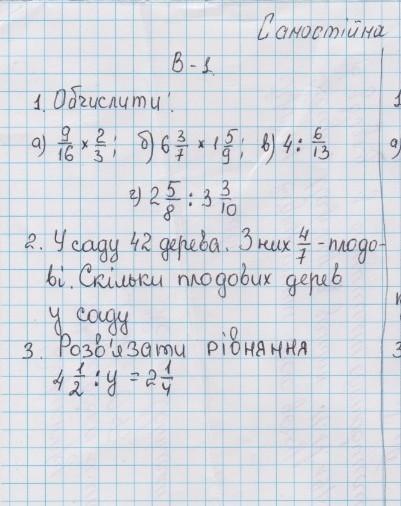 Самостійна
В-1
1. Обчислити:
а) 9/16 × 2/3; б) 6 3/7 × 1 5/9; в) 4 : 6/13
г) 2 5/8 : 3 3/10
2. У саду 42 дерева. З них 4/7 - плодо-
ві. Скільки плодових дерев
у саду
3. Розв'язати рівняння
4 1/2 : y = 2 1/4